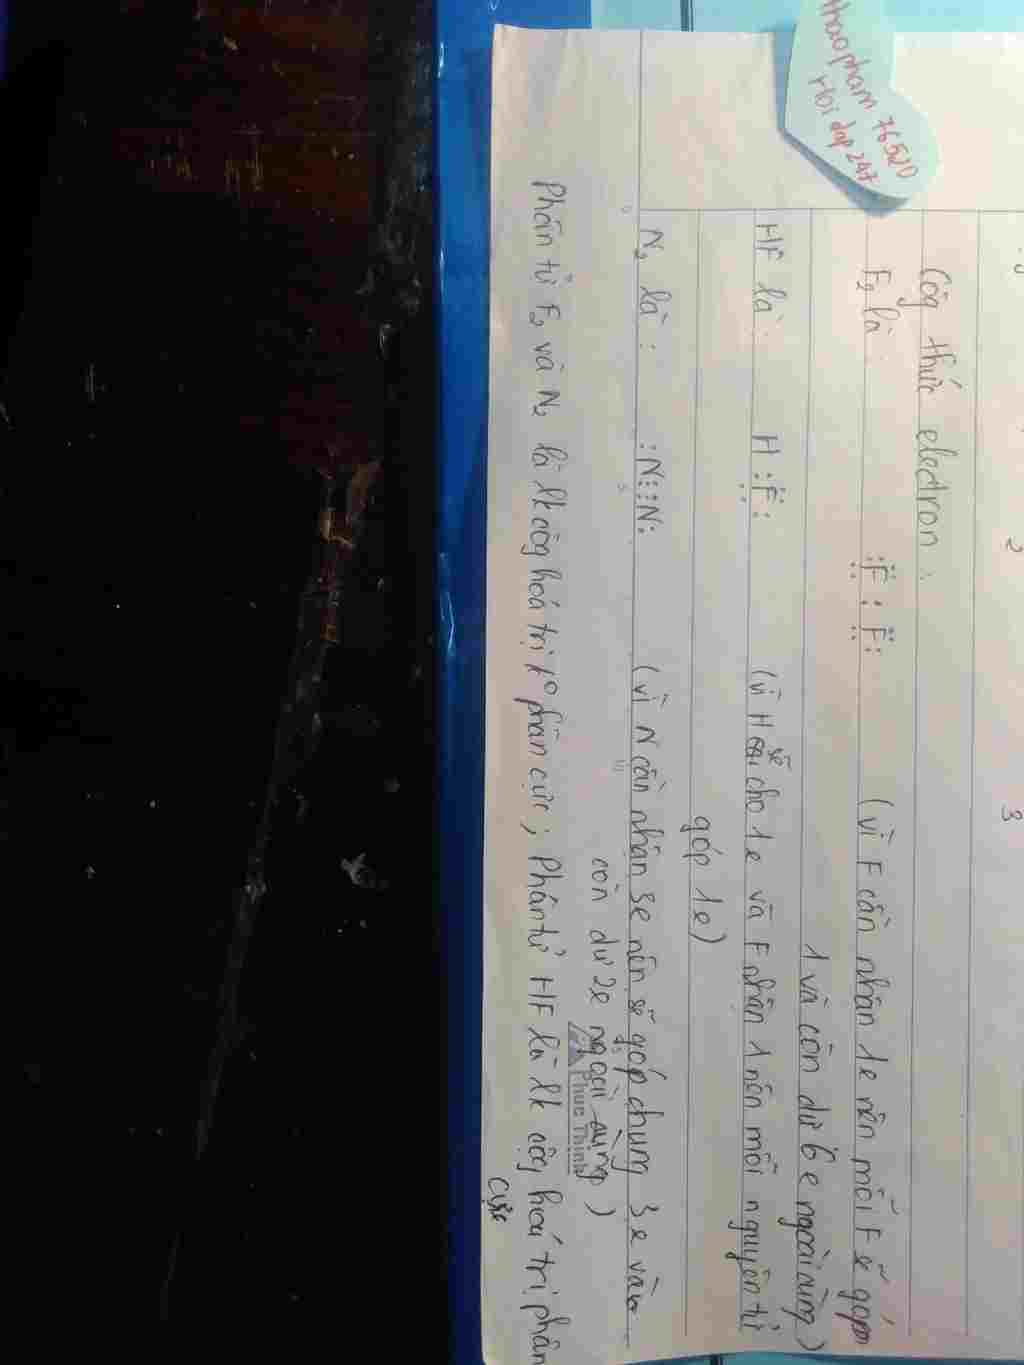 thaopham 76520
Hoi dap 247
2
3
Côg thức electron :
F₂ là :F̤̈ : F̤̈: (vì F cần nhận 1e nên mỗi F sẽ góp
1 và còn dư 6 e ngoài cùng)
HF là : H :F̤̈: (vì H sẽ cho 1e và F nhận 1 nên mỗi nguyên tử
góp 1e)
N₂ là : :N⋮⋮N: (vì N cần nhận 3e nên sẽ góp chung 3e và
còn dư 2e ngoài cùng)
Phúc Thịnh
Phân tử F₂ và N₂ là lk côg hoá trị k⁰ phân cực ; Phân tử HF là lk côg hoá trị phân
cực